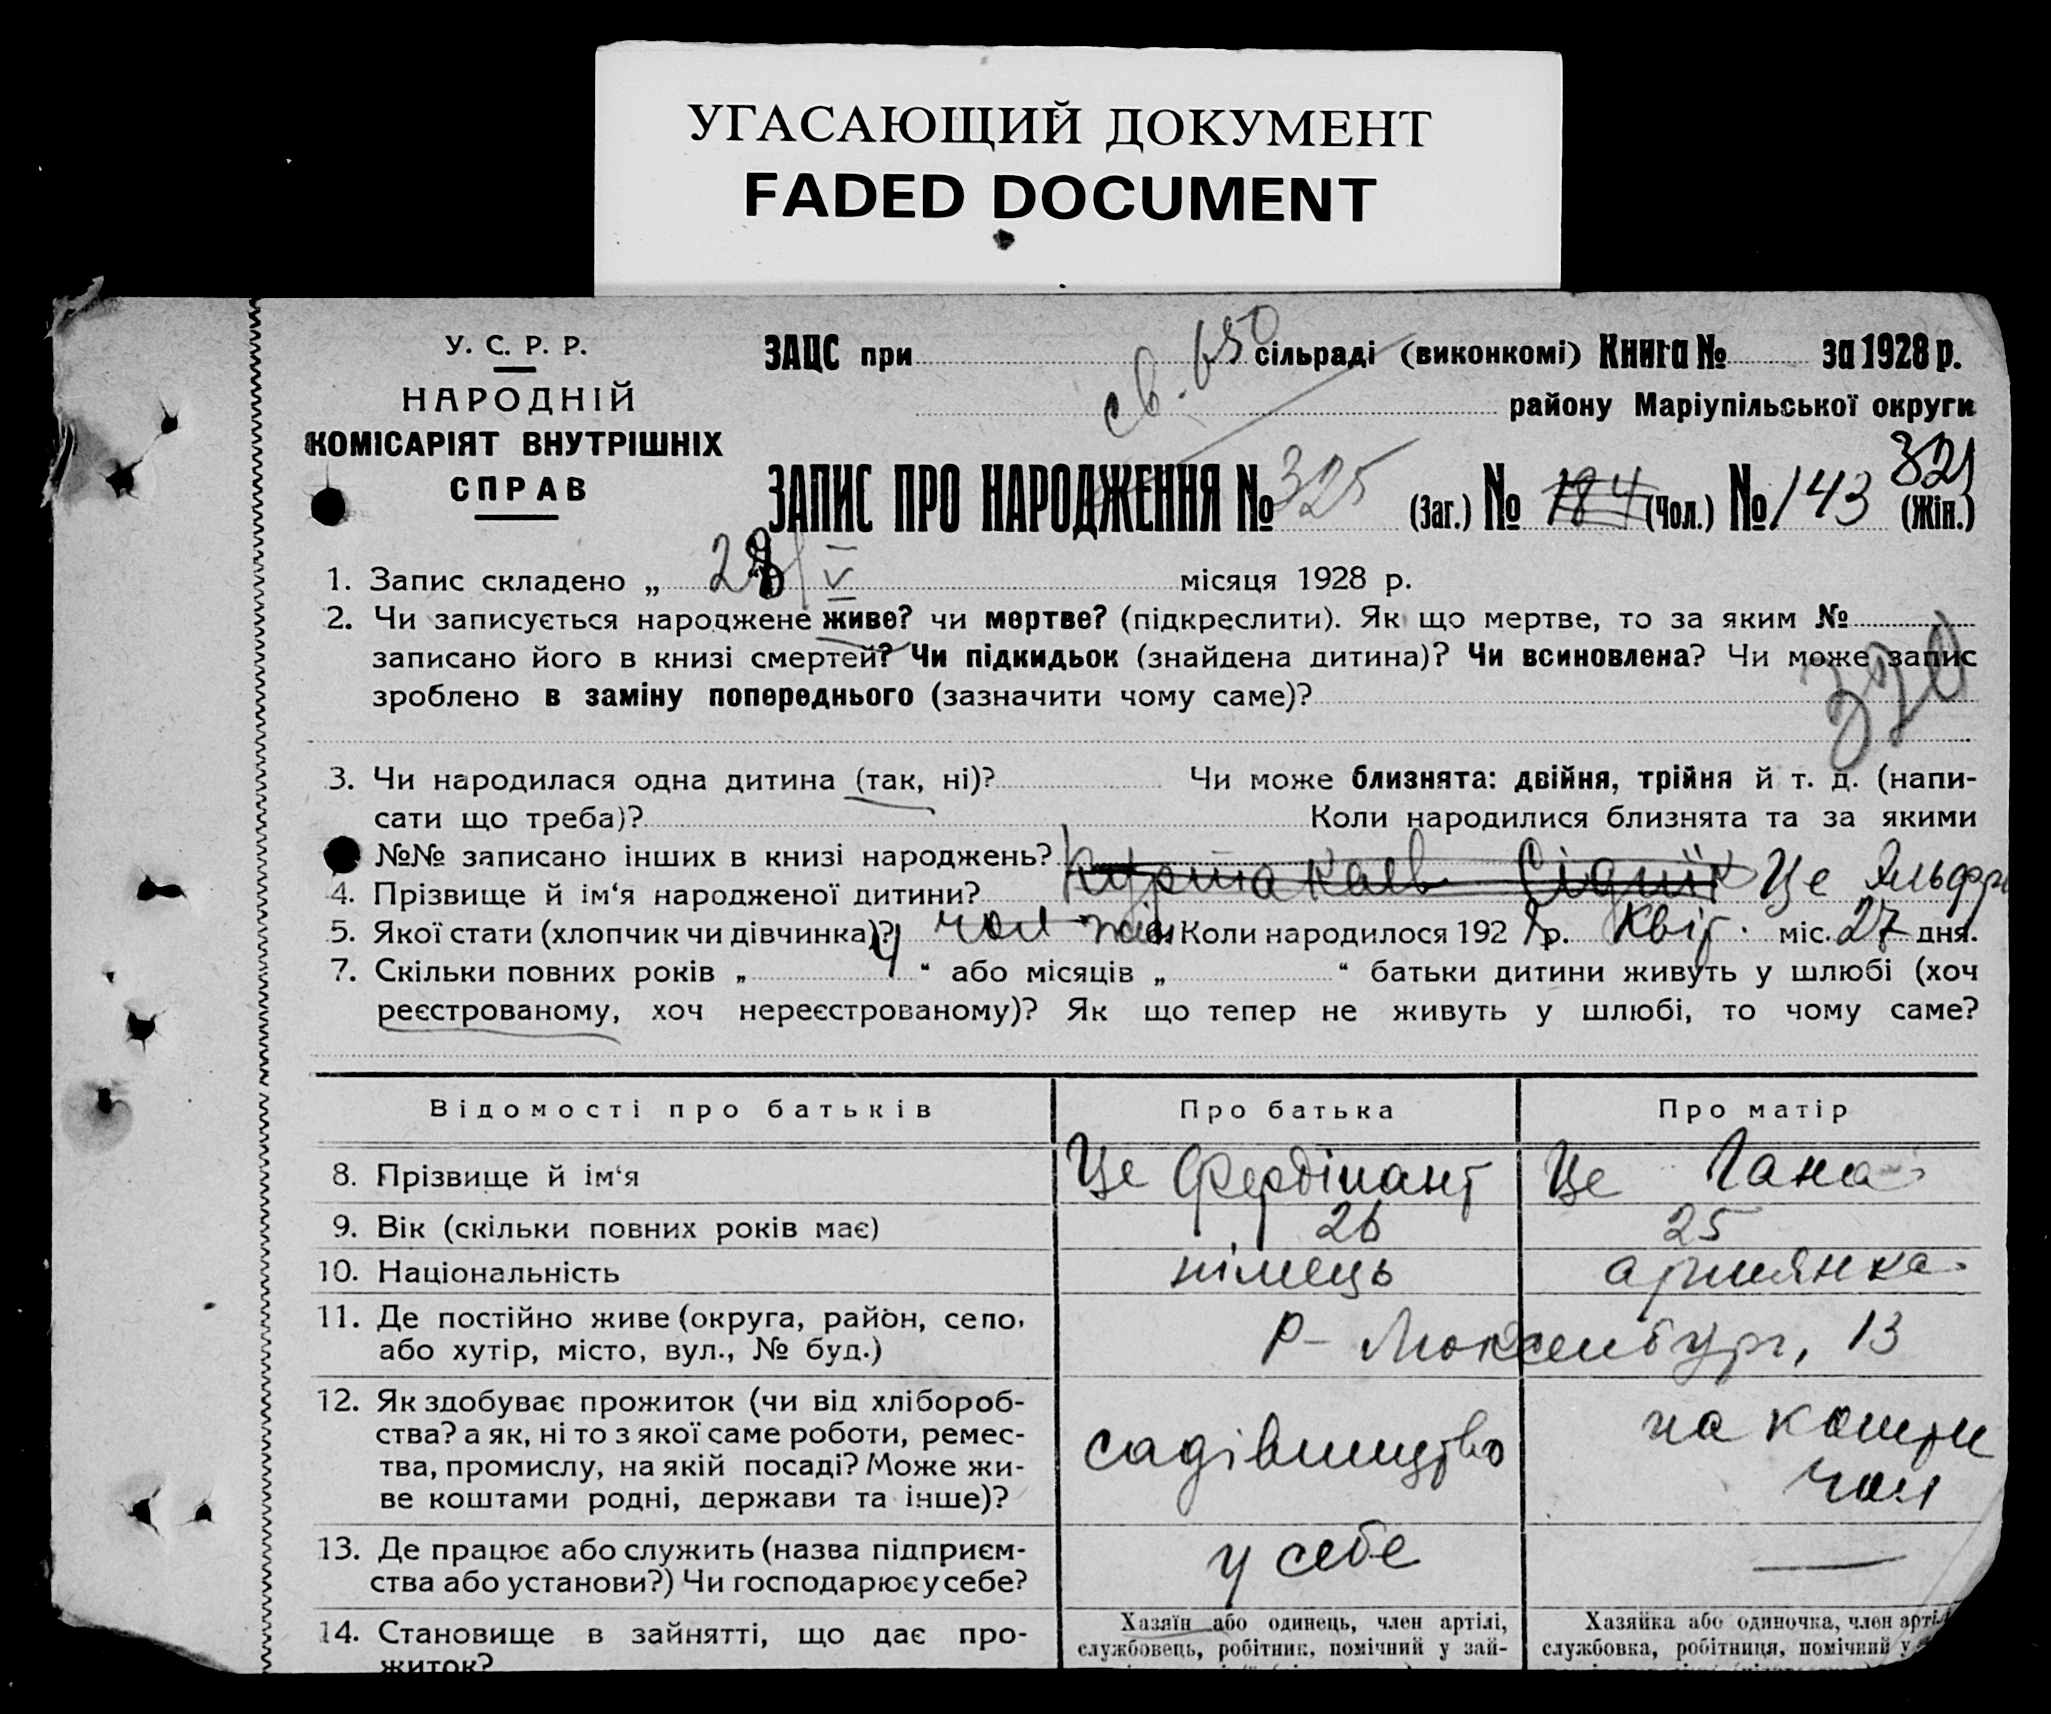 УГАСАЮЩИЙ ДОКУМЕНТ
FADED DOCUMENT
У. С. Р. Р.
НАРОДНІЙ
КОМІСАРІЯТ ВНУТРІШНІХ
СПРАВ
св. 650
ЗАЦС при сільраді (виконкомі) Книга № за 1928 р.
району Маріупільської округи
321
ЗАПИС ПРО НАРОДЖЕННЯ № 325 (Заг.) № 184 (Чол.) № 143 (Жін.)
1. Запис складено „ 28 V місяця 1928 р.
2. Чи записується народжене живе? чи мертве? (підкреслити). Як що мертве, то за яким №
записано його в книзі смертей? Чи підкидьок (знайдена дитина)? Чи всиновлена? Чи може запис
зроблено в заміну попереднього (зазначити чому саме)?
320
3. Чи народилася одна дитина (так, ні)? Чи може близнята: двійня, трійня й т. д. (напи-
сати що треба)? Коли народилися близнята та за якими
№№ записано інших в книзі народжень?
4. Прізвище й ім‘я народженої дитини? Це
5. Якої стати (хлопчик чи дівчинка)? чол жін 6. Коли народилося 1928 р. квіт. міс. 27 дня.
7. Скільки повних років „ 4 “ або місяців „ “ батьки дитини живуть у шлюбі (хоч
реєстрованому, хоч нереєстрованому)? Як що тепер не живуть у шлюбі, то чому саме?
Відомості про батьків Про батька Про матір
8. Прізвище й ім‘я Це Фердінант Це Гана
9. Вік (скільки повних років має) 26 25
10. Національність німець армянка
11. Де постійно живе (округа, район, село,
або хутір, місто, вул., № буд.) Р- Люксембург, 13
12. Як здобуває прожиток (чи від хлібороб-
ства? а як, ні то з якої саме роботи, ремес-
тва, промислу, на якій посаді? Може жи-
ве коштами родні, держави та інше)? садівництво на кошти
чол
13. Де працює або служить (назва підприєм-
ства або установи?) Чи господарює у себе? у себе —
14. Становище в зайнятті, що дає про-
житок?
Хазяїн або одинець, член артілі,
службовець, робітник, помічний у зай-
Хазяйка або одиночка, член арті
службовка, робітниця, помічний у